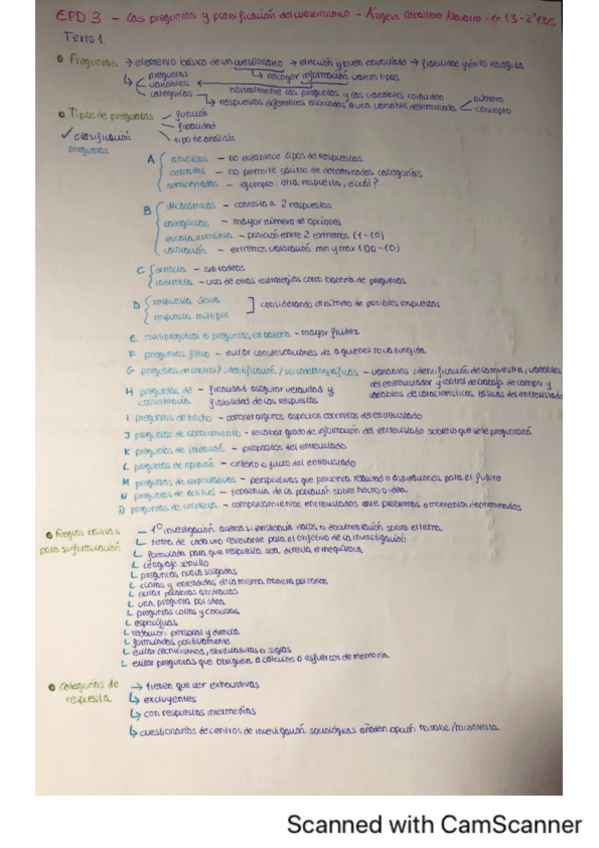 EPD 3 - Las preguntas y planificación del cuestionario - Ángela Caballero Navarro - G 13 - 2º EDS
Texto 1.
Preguntas → elemento básico de un cuestionario → elección y buen enunciado → fiabilidad y éxito recogida
↳ preguntas ↳ recoger información varios tipos
variables normalmente las preguntas y las variables coinciden
categorías → respuestas diferentes asociadas a una variable determinada número
concepto
Tipos de preguntas función
finalidad
✓ clasificación tipo de análisis
preguntas
A abiertas - no establece tipos de respuestas
cerradas - no permite salirse de determinadas categorías
semicerradas - ejemplo: otra respuesta, ¿cuál?
B dicotómicas - contesta a 2 respuestas
categóricas - mayor número de opciones
escala numérica - posición entre 2 extremos (1-10)
valoración - extremos valoración mín y max (00-10)
C directa - sin rodeos
indirecta - uso de otras estrategias como batería de preguntas
D respuesta única
respuesta múltiple ] considerando el número de posibles respuestas
E multipreguntas o preguntas en batería - mayor fluidez
F preguntas filtro - evitar contestaciones de a quienes no va dirigida
G preguntas de control / identificación / sociodemográficas - variables identificación de la muestra, variables
del entrevistador y control de trabajo de campo y
variables de características básicas del entrevistado
H preguntas de - finalidad asegurar veracidad y
consistencia fiabilidad de las respuestas
I preguntas de hecho - conocer algunos aspectos concretos del entrevistado
J preguntas de conocimiento - recabar grado de información del entrevistado sobre lo que se le preguntará
K preguntas de intención - propósitos del entrevistado
L preguntas de opinión - criterio o juicio del entrevistado
M preguntas de expectativas - perspectivas que presenta realidad o aspiraciones para el futuro
N preguntas de actitud - tendencia de la población sobre hecho o idea
Ñ preguntas de conducta - comportamientos entrevistados ante problemas o momentos determinados
Reglas básicas - 1º investigación acerca si existencia datos o documentación sobre el tema
para su formulación ↳ tema de cada uno relevante para el objetivo de la investigación
↳ formulada para que respuesta sea directa e inequívoca
↳ lenguaje sencillo
↳ preguntas nunca sesgadas
↳ claras y entendidas de la misma manera por todos
↳ evitar palabras abstractas
↳ una pregunta por idea
↳ preguntas cortas y concisas
↳ específicas
↳ redacción personal y directa
↳ formuladas positivamente
↳ evitar tecnicismos, abreviaturas o siglas
↳ evitar preguntas que obliguen a cálculos o esfuerzos de memoria
Categorías de → tienen que ser exhaustivas
respuesta ↳ excluyentes
↳ con respuestas intermedias
↳ cuestionarios de centros de investigación sociológicas añaden opción no sabe/no contesta
Scanned with CamScanner